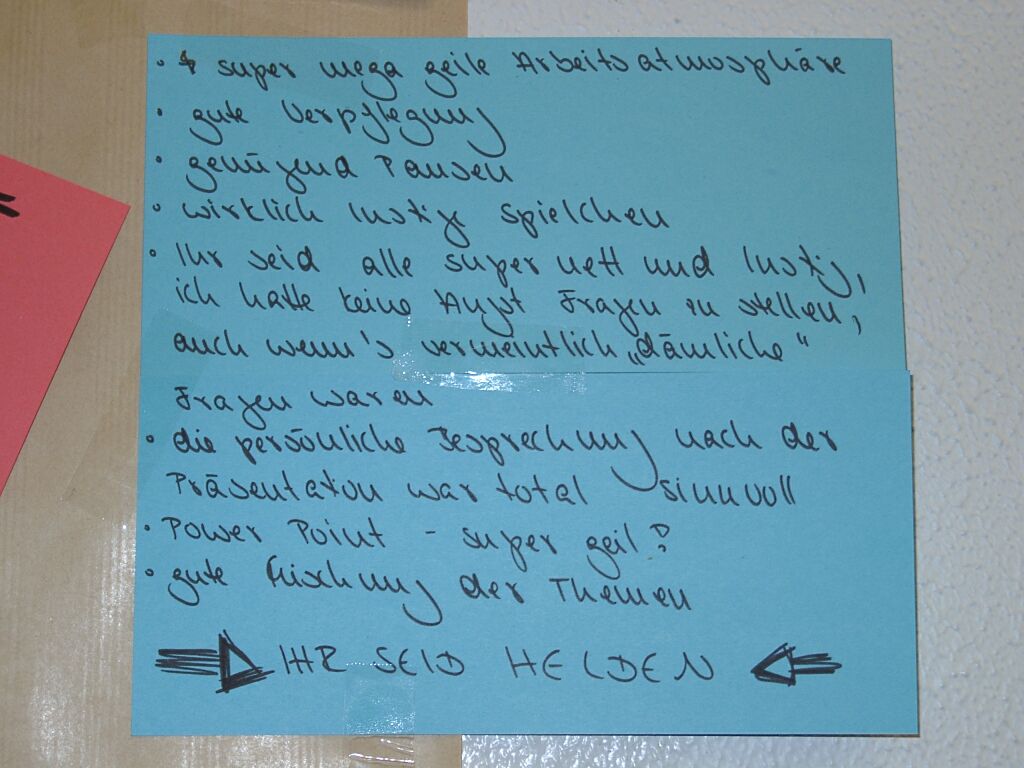 • super mega geile Arbeitsatmosphäre
• gute Verpflegung
• genügend Pausen
• wirklich lustige spielchen
• Ihr seid alle super nett und lustig,
ich hatte keine Angst Fragen zu stellen,
auch wenn's vermeintlich „dämliche“
Fragen waren
• die persönliche Besprechnung nach der
Präsentation war total sinnvoll
• Power Point - super geil!
• gute Mischung der Themen
IHR SEID HELDEN